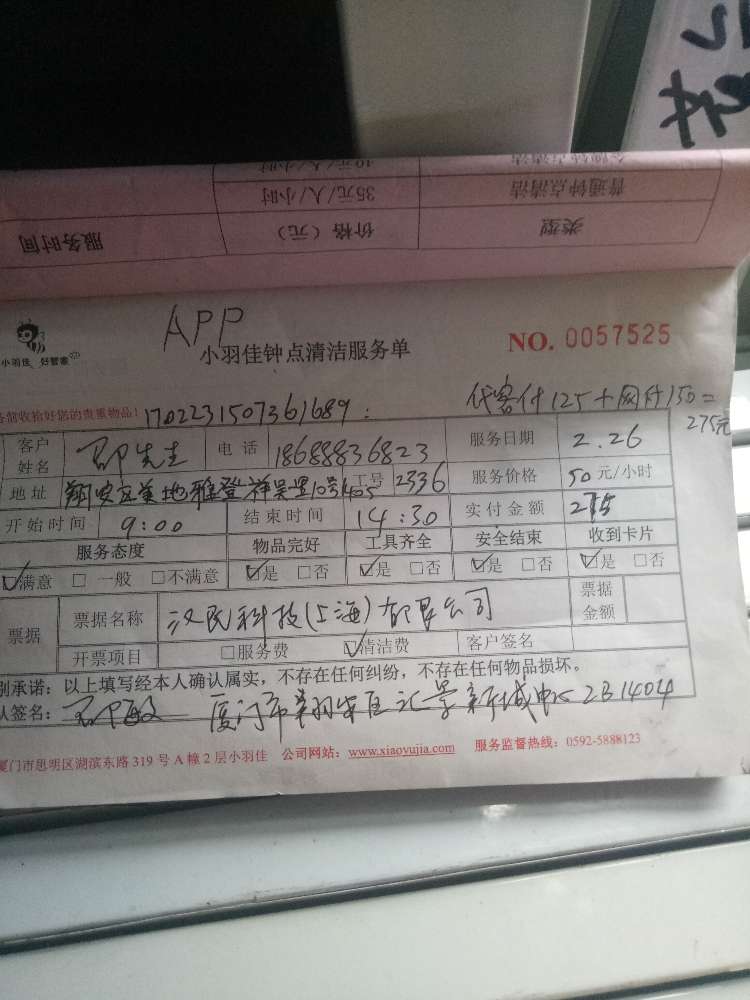 普通钟点清洁 35元/人/小时
类型 价格（元） 服务时间
APP
小羽佳 好管家
小羽佳钟点清洁服务单 NO. 0057525
前收拾好您的贵重物品！1702231507361689： 代客付125+网付150=
275元
客户姓名 邵先生 电话 18688836823 服务日期 2.26
地址 翔安区美地雅登祥吴里10号1405 工号 2336 服务价格 50元/小时
开始时间 9:00 结束时间 14:30 实付金额 275
服务态度 物品完好 工具齐全 安全结束 收到卡片
☑满意 □一般 □不满意 ☑是 □否 ☑是 □否 ☑是 □否 ☑是 □否
票据 票据名称 汉民科技(上海)有限公司 票据金额
开票项目 □服务费 ☑清洁费 客户签名
别承诺：以上填写经本人确认属实，不存在任何纠纷，不存在任何物品损坏。
认签名： 邵敏 厦门市翔安区汇景新城中心2B1404
厦门市思明区湖滨东路319号A幢2层小羽佳 公司网站：www.xiaoyujia.com 服务监督热线：0592-5888123